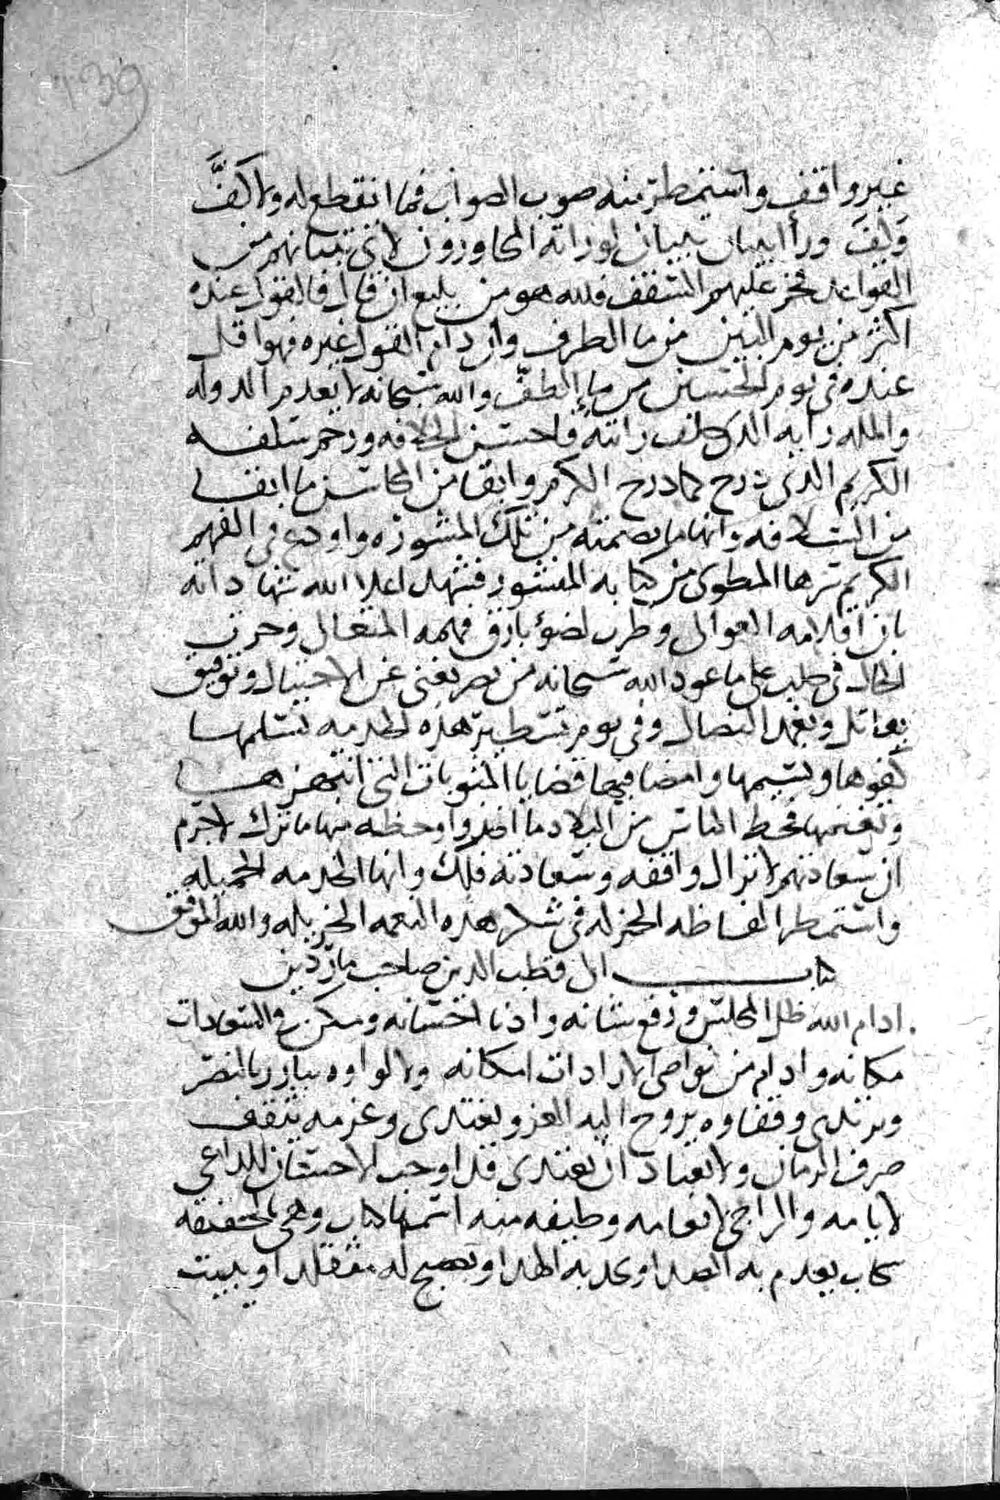 139
غير واقف واستمطر منه صوب الصواب فما انقطع له ولا كفَّ
وَلَفَ ورأ البيان ببيان لو راته المحاورون لاتى بنيانهم من
القواعد فخر عليهم السقف فلله هو من بليع ان قال فالقول عنده
اكثر من يوم البين من ما الطرف وان دام القول غيره فهو اقل
عنده في يوم الحسين من ماء الطفّ والله سبحانه لا يعدم الدوله
والمله رايه الذى خلف فاحسن الخلافه ورحم سلفه
الكريم الذى درج كما درج الكرم وابقا من المحاسن ما ابقا
من السلافه وانها ما تضمنته من تلك المشوره واودع في الفهم
الكريم سرها المطوى من كتابه المنشور فشهد اعلا الله شهاداته
بان اقلامه العوالى وطرب لضوء بارق فهمه المتعال وحرف
الحال في حلب على ما عود الله سبحانه من نصر يغنى عن الاحتيال وتوفيق
يقاتل وتغمد النصال وفى يوم تسطير هذه الخدمه يتسلمها
كفوها وامضا فيها قضايا المثوبات التى انتهزها
فحط الناس من البلاد ما اخذوا وحظه منها ما ترك لا جرم
ان سعادتهم لا تزال واقفه وسعادته فلك وانها الخدمه الجميله
واستمطر الفاظه الجزله في شكر هذه النعمه الجزيله والله الموفق
كتاب الى قطب الدين صاحب ماردين
ادام الله ظل المجلس ورفع شانه وادنا احسانه ومكن في السعادات
مكانه وادام من نواصى الارادات امكانه ولا لواوه بالنصر
ويرتدى وفناوه يروح اليه العز ويغتدى وعزمه يثقف
صرف الزمان ولا يعتاد ان يعتدى قد اوجب الاحسان للداعى
لايامه والراجى لانعامه وظيفه منه اسمها كتاب وهى الحقيقه
سحاب يعدم به الصدا ويحد به الهدا ويصبح له مقلد او يبيت